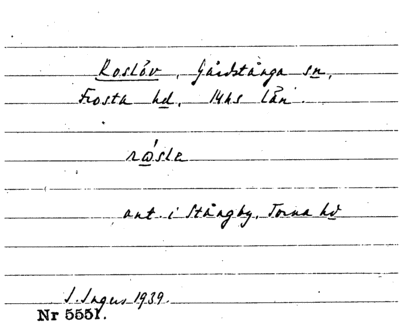 Roslöv, Gårdstånga sn,
Frosta hd, Mhs län.
røsle
ant. i Stångby, Torna hd
S. Ingers 1939.
Nr 5551.